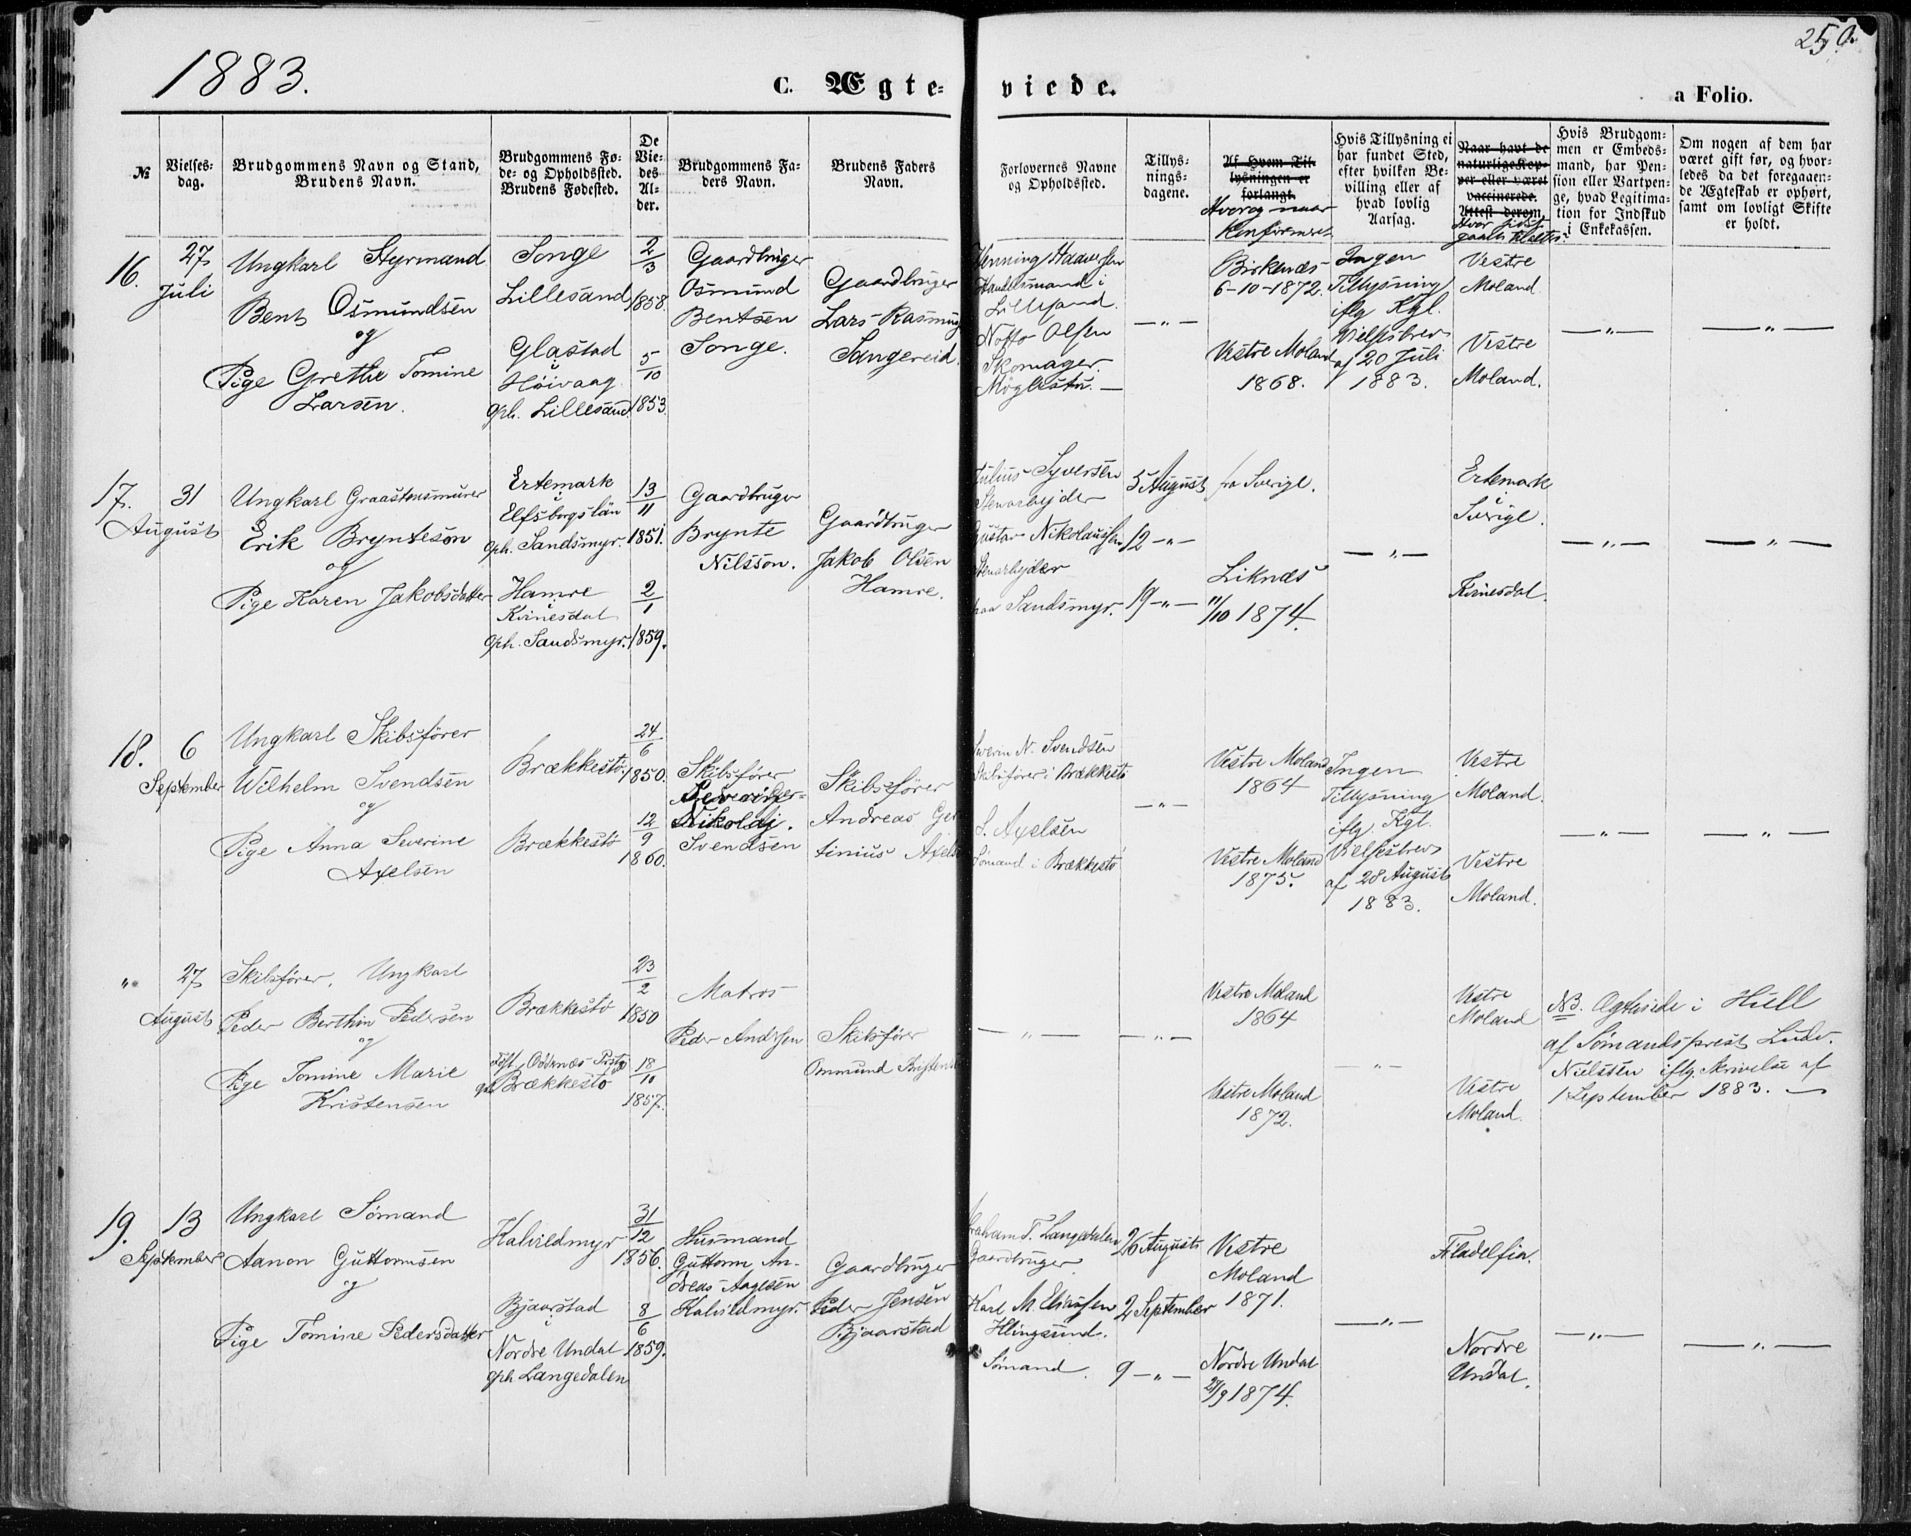 1883.
C. Ægte-
viede.
a Folio.
250.
№
Vielses-
dag.
Brudgommens Navn og Stand,
Brudens Navn.
Brudgommens Fø-
de- og Opholdssted.
Brudens Fødested.
De
Vie-
des
Al-
der.
Brudgommens Fa-
ders Navn.
Brudens Faders
Navn.
Forlovernes Navne
og Opholdssted.
Tillys-
nings-
dagene.
Af Hvem Til-
lysningen er
forlangt.
Hver og naar
Konfirmeret
Hvis Tillysning ei
har fundet Sted,
efter hvilken Be-
villing eller af
hvad lovlig
Aarsag.
Naar havt de
naturlige Kop-
per eller været
vaccinerede.
Attest derom.
Hvor sidst
Hvis Brudgom-
men er Embeds-
mand, har Pen-
sion eller Vartpen-
ge, hvad Legitima-
tion for Indskud
i Enkekassen.
Om nogen af dem har
været gift før, og hvor-
ledes da det foregaaen-
de Ægteskab er ophørt,
samt om lovligt Skifte
er holdt.
16.
27
Juli
Ungkarl Styrmand
Bent Osmundsen
og
Pige Grethe Tomine
Larsen.
Songe
Lillesand
Glastad
i
Høivaag
oph. Lillesand
2
3
1858.
5
10
1853.
Gaardbruger
Osmund
Bentsen
Songe.
Gaardbruger
Lars Rasmus
Sangereid.
Henning Haaversen
Handelsmand i
Lillesand.
Notto Olsen
Skomager.
Møglestu. —
— „ —
Birkenæs
6-10-1872.
Vestre Moland
1868.
Ingen
Tillysning
iflg. Kgl.
Vielsesbrev
af 20 Juli
1883.
Vestre
Moland.
Vestre
Moland.
— „ —
— „ —
17.
31
August
Ungkarl Graastensmurer
Erik Brynteson
og
Pige Karen Jakobsdatter
Ertemark
i
Elfsborgslän
oph. Sandsmyr.
Hamre
i
Kvinesdal
oph. Sandsmyr.
13
11
1851.
2
1
1859.
Gaardbruger
Brynte
Nilsson.
Gaardbruger
Jakob Olsen
Hamre.
Julius Syversen
Stenarbejder
Gustav Nikolaussen
Stenarbejder
paa Sandsmyr.
5 August
12 — „ —
19 — „ —
fra Sverige.
Liknæs
11/10 1874.
— „ —
Ertemark
i
Sverige.
Kvinesdal.
— „ —
— „ —
18.
6
September
Ungkarl Skibsfører
Wilhelm Svendsen
og
Pige Anna Severine
Axelsen
Brækkestø.
Brækkestø
24
6
1850.
12
9
1860.
Skibsfører
Nikolaj.
Svendsen
Skibsfører
Andreas Ger-
tinius Axelsen
N. Svendsen
Skibsfører i Brækkestø
S. Axelsen
Sømand i Brækkestø
— „ —
Vestre Moland
1864
Vestre Moland
1875.
Ingen
Tillysning
iflg. Kgl.
Vielsesbrev
af 28 August
1883.
Vestre
Moland.
Vestre
Moland.
— „ —
— „ —
„
27
August
Skibsfører, Ungkarl
Peder Berthin Pedersen
og
Pige Tomine Marie
Kristensen
Brækkestø
Født Oddernæs
oph. Brækkestø
23
2
1850
18
10
1857.
Matros
Peder Andersen
Skibsfører
Ommund Kristensen
— „ —
— „ —
Vestre Moland
1864
Vestre Moland
1872.
— „ —
Vestre
Moland
Vestre
Moland.
NB. Ægteviede i Hull
af Sømandsprest Ludv.
Nielssen iflg. Skrivelse af
1 September 1883. —
19.
13
September
Ungkarl Sømand
Aanon Guttormsen
og
Pige Tomine Pedersdatter
Kalvildmyr
Bjaarstad
i
Nordre Undal
oph Langedalen
31
12
1856.
8
6
1859.
Husmand
Guttorm An-
dreas Aagesen
Kalvildmyr.
Gaardbruger
Peder Jensen
Bjaarstad
Abraham T. Langedalen
Gaardbruger
Karl M. Eliassen
Sømand.
26 August
2 September
9 — „ —
Vestre
Moland
1871.
Nordre Undal
1874.
— „ —
Filadelfia.
Nordre
Undal.
— „ —
— „ —